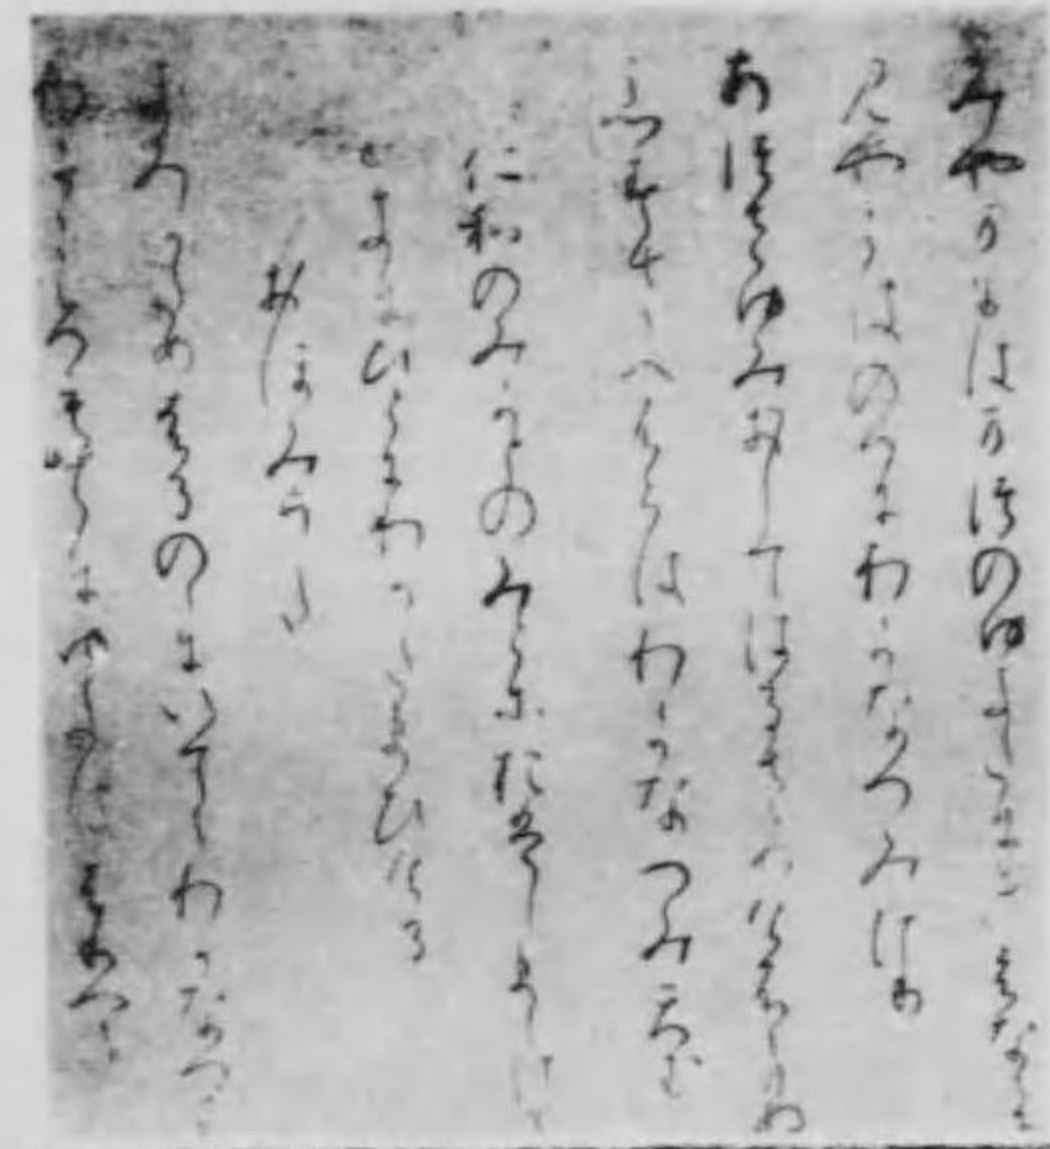 みやまにはまつのゆきたにきえなくに
見やこはのへのわかなつみけり
あつさゆみおしてはるさめけふふりぬ
あすさへふらはわかなつみてむ
仁和のみかとのみこにおはしましける
ときにひとにわかなたまひける
おほみうた
きみかためはるのにいててわかなつむ
わかころもてにゆきはふりつつ